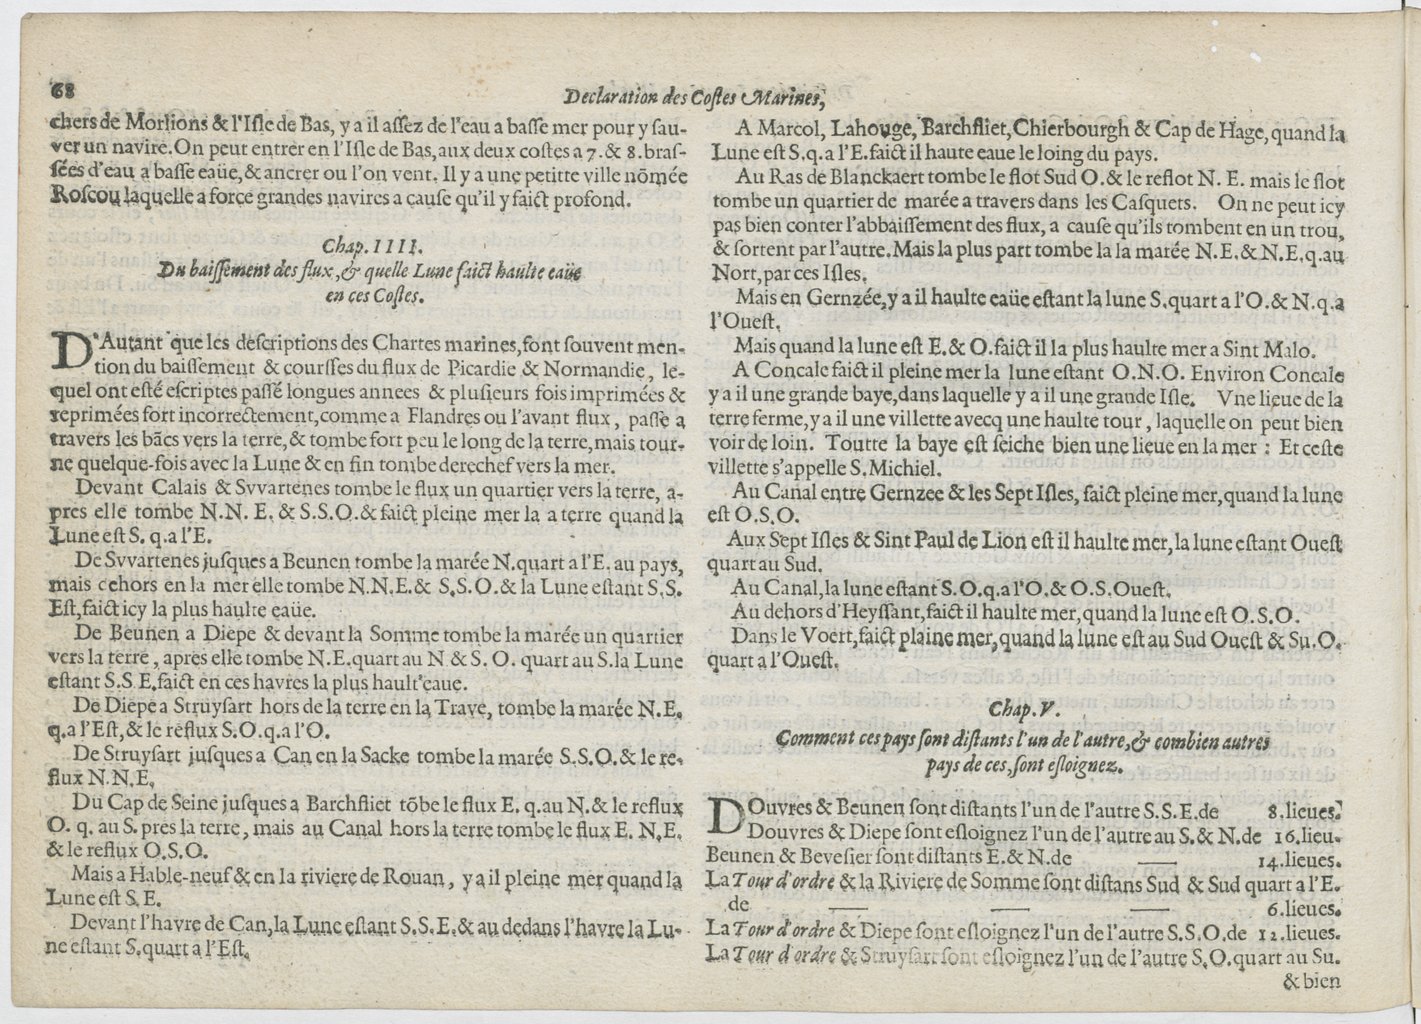 68
Declaration des Costes Marines,
chers de Morlions & l'Isle de Bas, y a il assez de l'eau a basse mer pour y sau-
ver un navire. On peut entrer en l'Isle de Bas, aux deux costes a 7. & 8. bras-
sées d'eau a basse eaüe, & ancrer ou l'on vent. Il y a une petitte ville nõmée
Roscou laquelle a force grandes navires a cause qu'il y faict profond.
Chap. IIII.
Du baissement des flux, & quelle Lune faict haulte eaüe
en ces Costes.
D'Autant que les descriptions des Chartes marines, font souvent men-
tion du baissement & coursses du flux de Picardie & Normandie, le-
quel ont esté escriptes passé longues annees & plusieurs fois imprimées &
reprimées fort incorrectement, comme a Flandres ou l'avant flux, passe a
travers les bãcs vers la terre, & tombe fort peu le long de la terre, mais tour-
ne quelque-fois avec la Lune & en fin tombe derechef vers la mer.
Devant Calais & Svvartenes tombe le flux un quartier vers la terre, a-
pres elle tombe N.N. E. & S.S.O. & faict pleine mer la a terre quand la
Lune est S. q. a l'E.
De Svvartenes jusques a Beunen tombe la marée N. quart a l'E. au pays,
mais cehors en la mer elle tombe N.N.E. & S.S.O. & la Lune estant S.S.
Est, faict icy la plus haulte eaüe.
De Beunen a Diepe & devant la Somme tombe la marée un quartier
vers la terre, apres elle tombe N.E. quart au N & S. O. quart au S. la Lune
estant S.S E. faict en ces havres la plus hault'eaue.
De Diepe a Struysart hors de la terre en la Trave, tombe la marée N.E.
q. a l'Est, & le reflux S.O. q. a l'O.
De Struysart jusques a Can en la Sacke tombe la marée S.S.O. & le re-
flux N.N.E.
Du Cap de Seine jusques a Barchfliet tõbe le flux E. q. au N. & le reflux
O. q. au S. pres la terre, mais au Canal hors la terre tombe le flux E. N.E.
& le reflux O.S.O.
Mais a Hable-neuf & en la riviere de Rouan, y a il pleine mer quand la
Lune est S.E.
Devant l'havre de Can, la Lune estant S.S.E. & au dedans l'havre la Lu-
ne estant S. quart a l'Est.
A Marcol, Lahouge, Barchfliet, Chierbourgh & Cap de Hage, quand la
Lune est S. q. a l'E. faict il haute eaue le loing du pays.
Au Ras de Blanckaert tombe le flot Sud O. & le reflot N. E. mais le flot
tombe un quartier de marée a travers dans les Casquets. On ne peut icy
pas bien conter l'abbaissement des flux, a cause qu'ils tombent en un trou,
& sortent par l'autre. Mais la plus part tombe la la marée N.E. & N.E. q. au
Nort, par ces Isles.
Mais en Gernzée, y a il haulte eaüe estant la lune S. quart a l'O. & N. q. a
l'Ouest.
Mais quand la lune est E. & O. faict il la plus haulte mer a Sint Malo.
A Concale faict il pleine mer la lune estant O.N.O. Environ Concale
y a il une grande baye, dans laquelle y a il une grande Isle. Vne lieue de la
terre ferme, y a il une villette avecq une haulte tour, laquelle on peut bien
voir de loin. Toutte la baye est seiche bien une lieue en la mer : Et ceste
villette s'appelle S. Michiel.
Au Canal entre Gernzee & les Sept Isles, faict pleine mer, quand la lune
est O.S.O.
Aux Sept Isles & Sint Paul de Lion est il haulte mer, la lune estant Ouest
quart au Sud.
Au Canal, la lune estant S.O. q. a l'O. & O.S. Ouest.
Au dehors d'Heyssant, faict il haulte mer, quand la lune est O.S.O.
Dans le Voert, faict plaine mer, quand la lune est au Sud Ouest & Su. O.
quart a l'Ouest.
Chap. V.
Comment ces pays sont distants l'un de l'autre, & combien autres
pays de ces, sont esloignez.
DOuvres & Beunen sont distants l'un de l'autre S.S.E. de 8. lieues.
Douvres & Diepe sont esloignez l'un de l'autre au S. & N. de 16. lieu.
Beunen & Bevesier sont distants E. & N. de 14. lieues.
La Tour d'ordre & la Riviere de Somme sont distans Sud & Sud quart a l'E.
de 6. lieues.
La Tour d'ordre & Diepe sont esloignez l'un de l'autre S.S.O. de 12. lieues.
La Tour d'ordre & Struysart sont esloignez l'un de l'autre S.O. quart au Su.
& bien